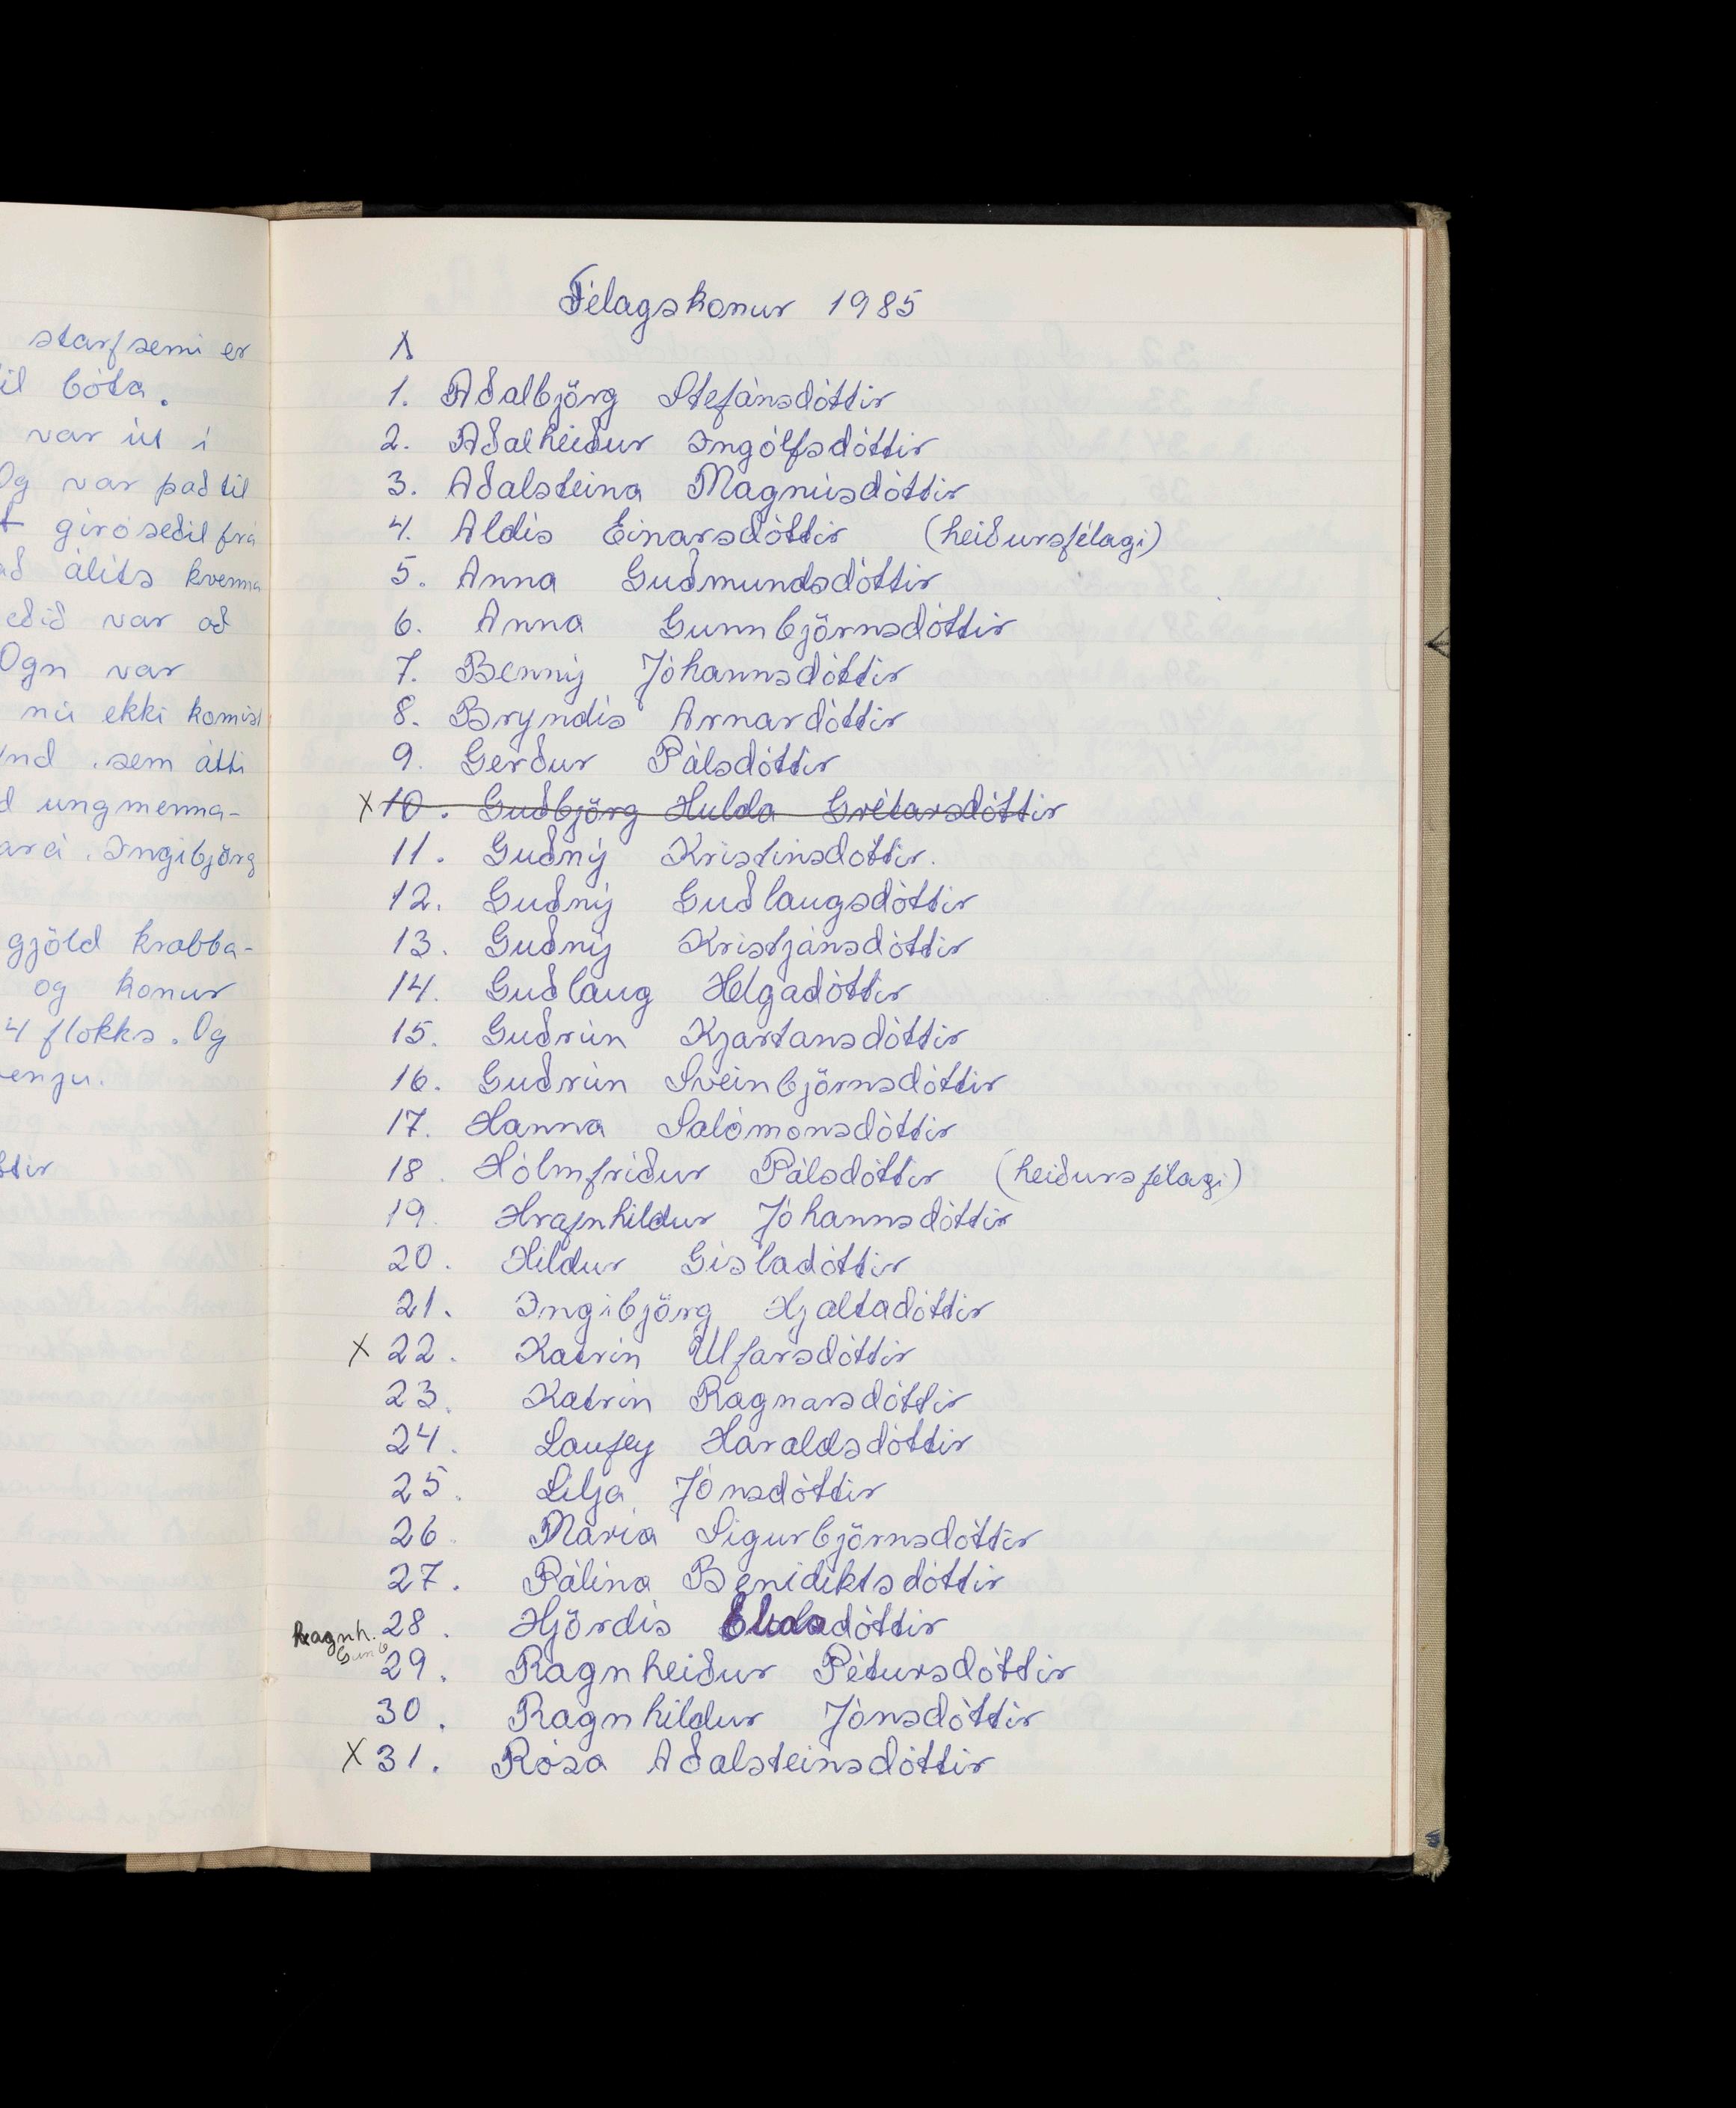 starfsemi er
til bóta.
var út í
Og var það til
gíróseðil frá
að álits kvenna
var að
Ogn var
nú ekki komist
sem átti
ungmenna-
Ingibjörg
gjöld krabba-
og konur
4 flokks. Og
Félagskonur 1985
1. Aðalbjörg Stefánsdóttir
2. Aðalheiður Ingólfsdóttir
3. Aðalsteina Magnúsdóttir
4. Aldís Einarsdóttir (heiðursfélagi)
5. Anna Guðmundsdóttir
6. Anna Gunnbjörnsdóttir
7. Benný Jóhannsdóttir
8. Bryndís Arnardóttir
9. Gerður Pálsdóttir
x 10. Guðbjörg Hulda Grétarsdóttir
11. Guðný Kristinsdottir.
12. Guðný Guðlaugsdóttir
13. Guðný Kristjánsdóttir
14. Guðlaug Helgadóttir
15. Guðrún Kjartansdóttir
16. Guðrún Sveinbjörnsdóttir
17. Hanna Salómonsdóttir
18. Hólmfríður Pálsdóttir (heiðursfélagi)
19. Hrafnhildur Jóhannsdóttir
20. Hildur Gísladóttir
21. Ingibjörg Hjaltadóttir
x 22. Katrín Úlfarsdóttir
23. Katrín Ragnarsdóttir
24. Laufey Haraldsdóttir
25. Lilja Jónsdóttir
26. María Sigurbjörnsdóttir
27. Pálína Benidiktsdóttir
Ragnh. 28. Hjördís
29. Ragnheiður Pétursdóttir
30. Ragnhildur Jónsdóttir
x 31. Rósa Aðalsteinsdóttir